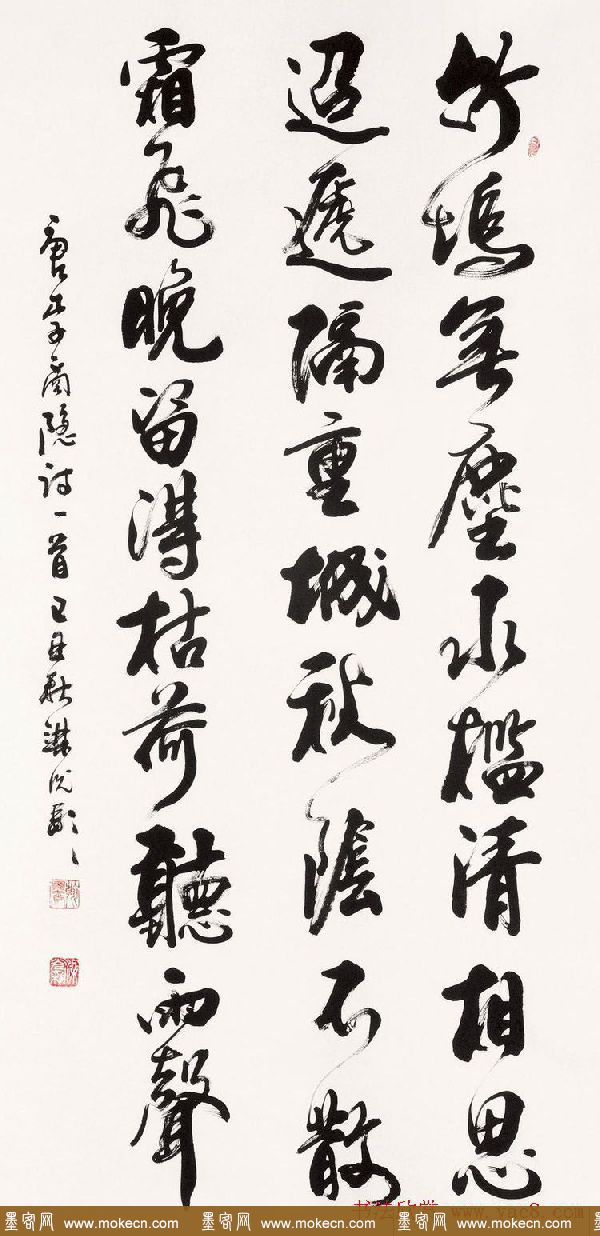 竹塢無塵水檻清相思
迢遞隔重城秋陰不散
霜飛晚留得枯荷聽雨聲
唐李商隱詩一首己丑秋
墨客网 www.mokecn.com 墨客网 www.mokecn.com 墨客网 www.mokecn.com